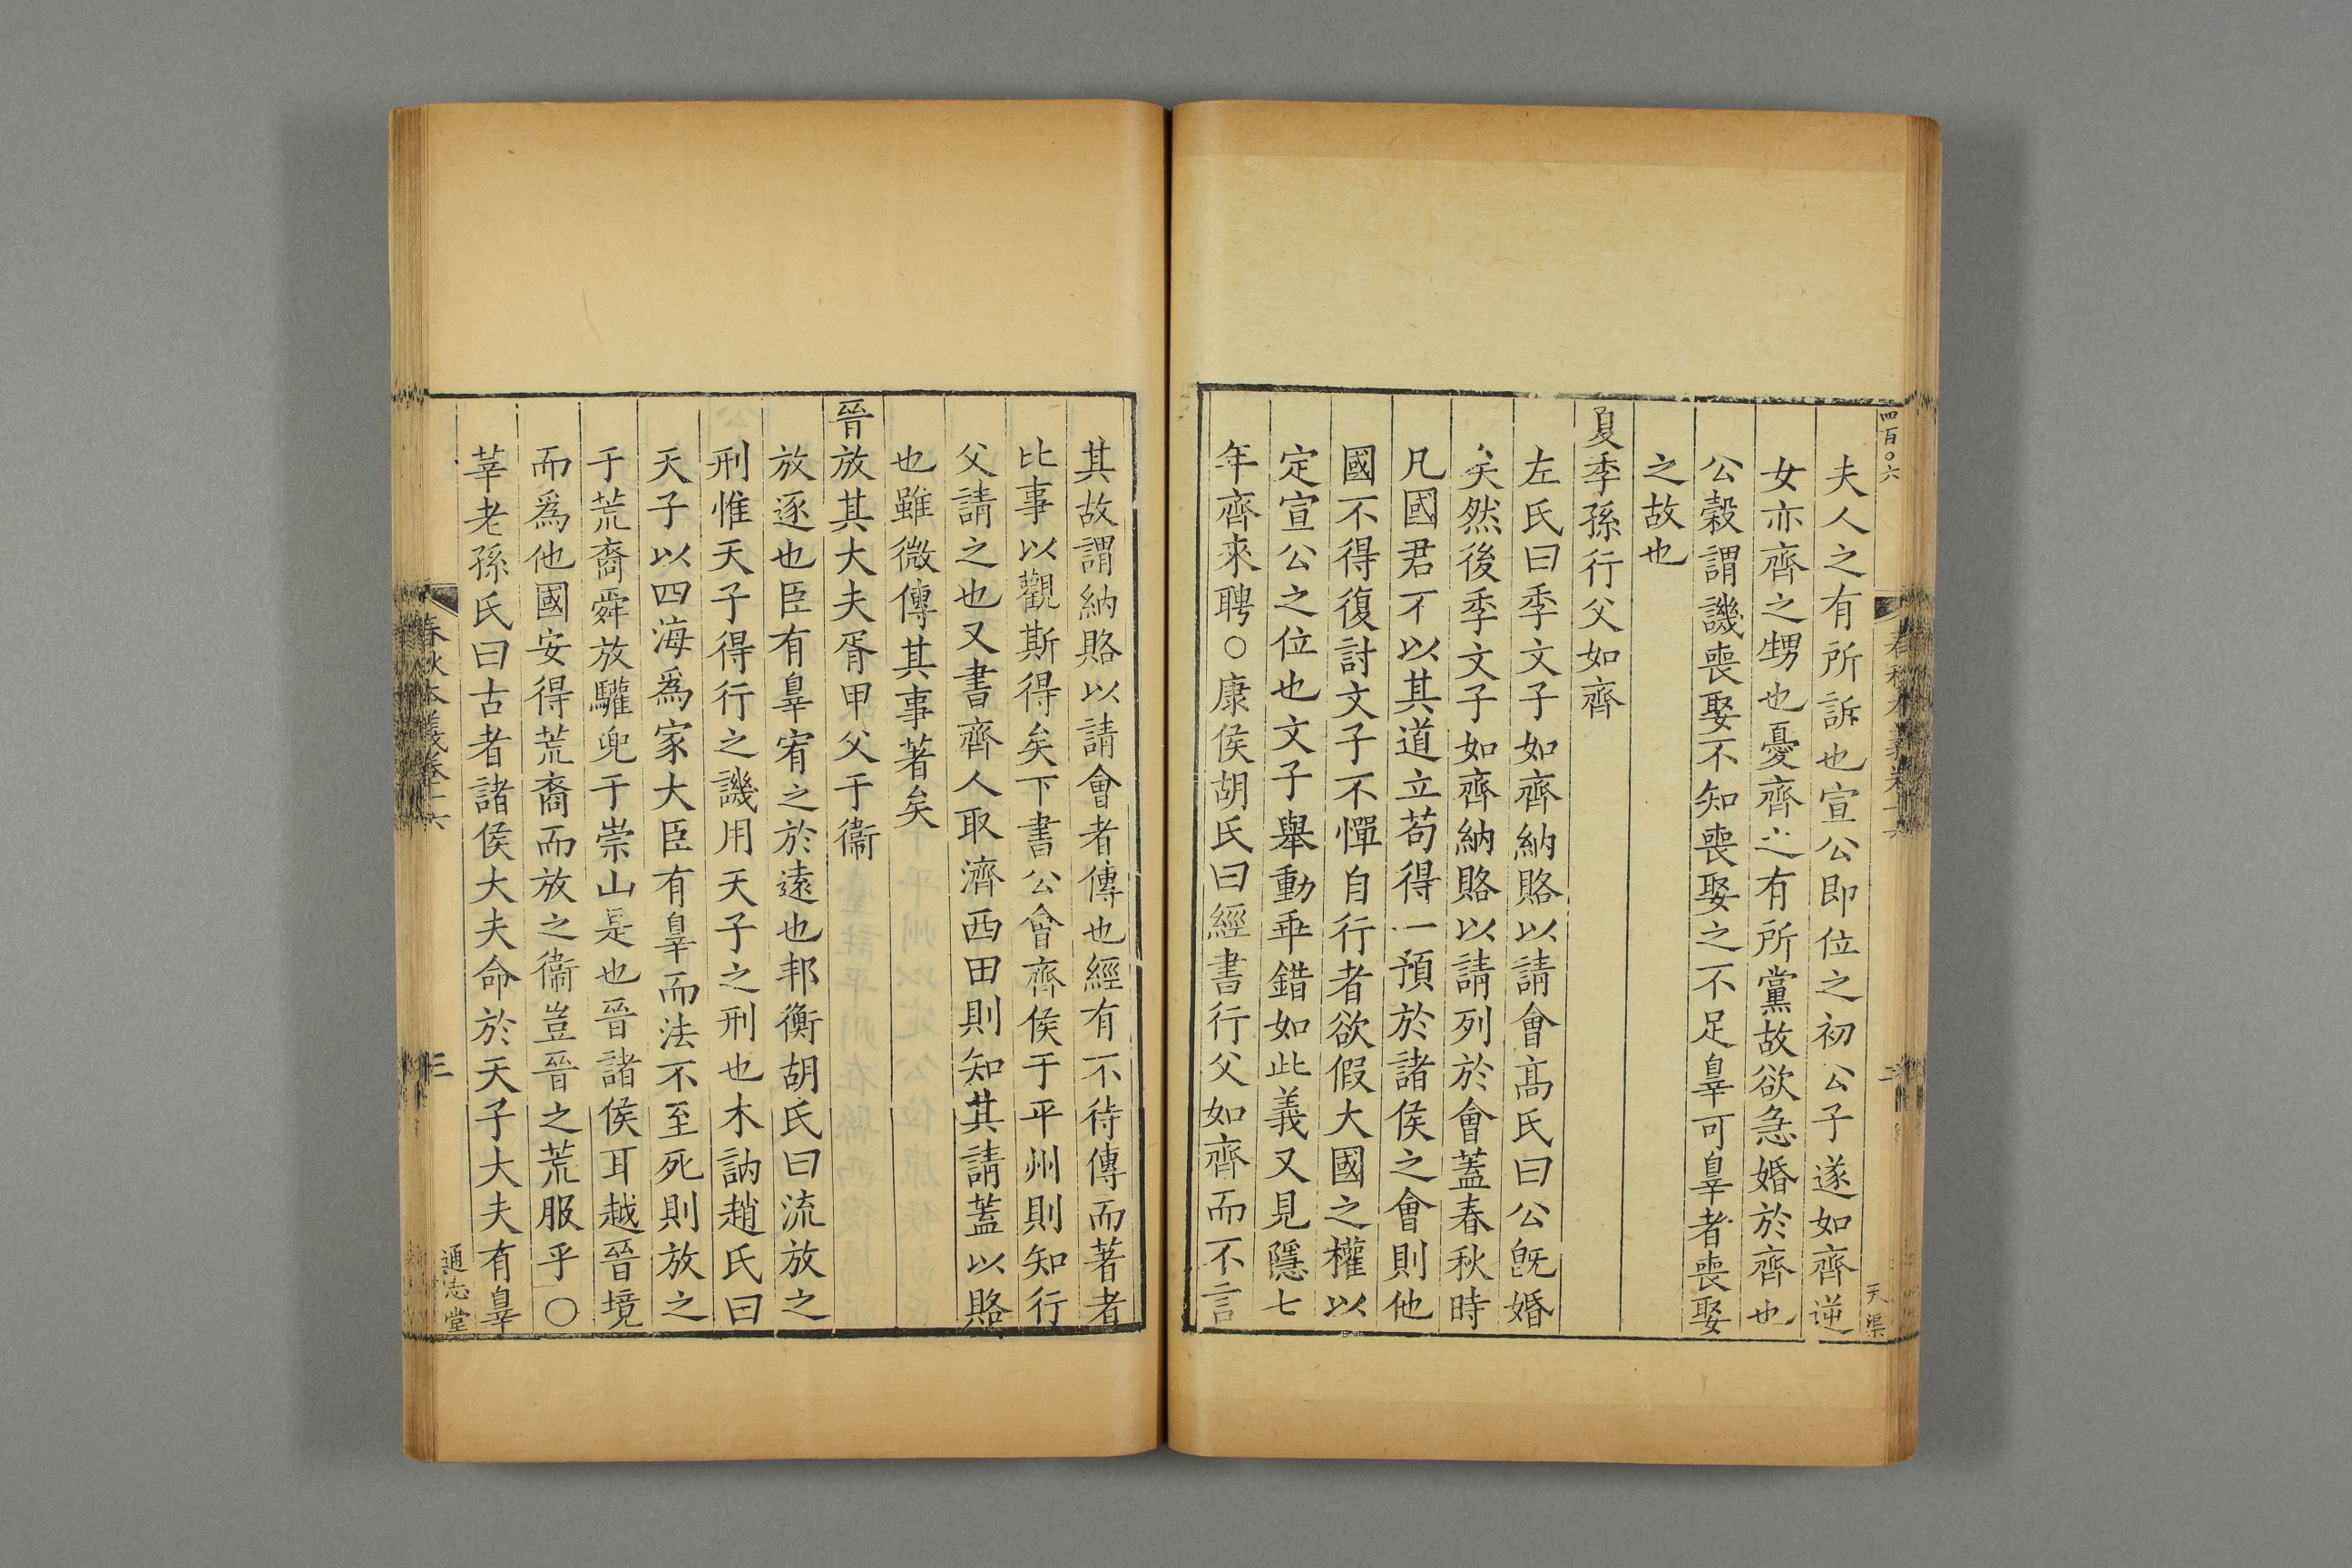 四百○六
夫人之有所訴也宣公即位之初公子遂如齊逆
女亦齊之甥也憂齊之有所黨故欲急婚於齊也
公穀謂譏喪娶不知喪娶之不足辠可辠者喪娶
之故也
夏季孫行父如齊
左氏曰季文子如齊納賂以請會高氏曰公旣婚
矣然後季文子如齊納賂以請列於會蓋春秋時
凡國君不以其道立苟得一預於諸侯之會則他
國不得復討文子不憚自行者欲假大國之權以
定宣公之位也文子舉動乖錯如此義又見隱七
年齊來聘○康侯胡氏曰經書行父如齊而不言
其故謂納賂以請會者傳也經有不待傳而著者
比事以觀斯得矣下書公會齊侯于平州則知行
父請之也又書齊人取濟西田則知其請蓋以賂
也雖微傳其事著矣
晉放其大夫胥甲父于衞
放逐也臣有辠宥之於遠也邦衡胡氏曰流放之
刑惟天子得行之譏用天子之刑也木訥趙氏曰
天子以四海爲家大臣有辠而法不至死則放之
于荒裔舜放驩兜于崇山是也晉諸侯耳越晉境
而爲他國安得荒裔而放之衞豈晉之荒服乎○
莘老孫氏曰古者諸侯大夫命於天子大夫有辠
春秋本義卷十六
三
通志堂